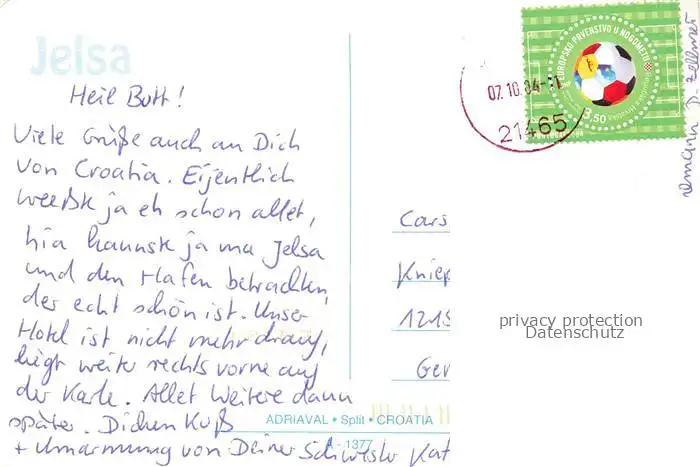 Jelsa
Heil Butt!
Viele Grüße auch an Dich
von Croatia. Eijentlich
weeßk ja eh schon allet,
hia kannsk ja ma Jelsa
und den Hafen betrachten,
der echt schön ist. Unser
Hotel ist nicht mehr drauf,
liegt weiter rechts vorne auf
der Karte. Allet Weitere dann
später. Dicken Kuß
+ Umarmung von Deiner Schwester Kat
EUROPSKO PRVENSTVO U NOGOMETU
3,50
07.10.04
21465
Cars
Kniep
1215
Ger
privacy protection
Datenschutz
ADRIAVAL • Split • CROATIA
1377